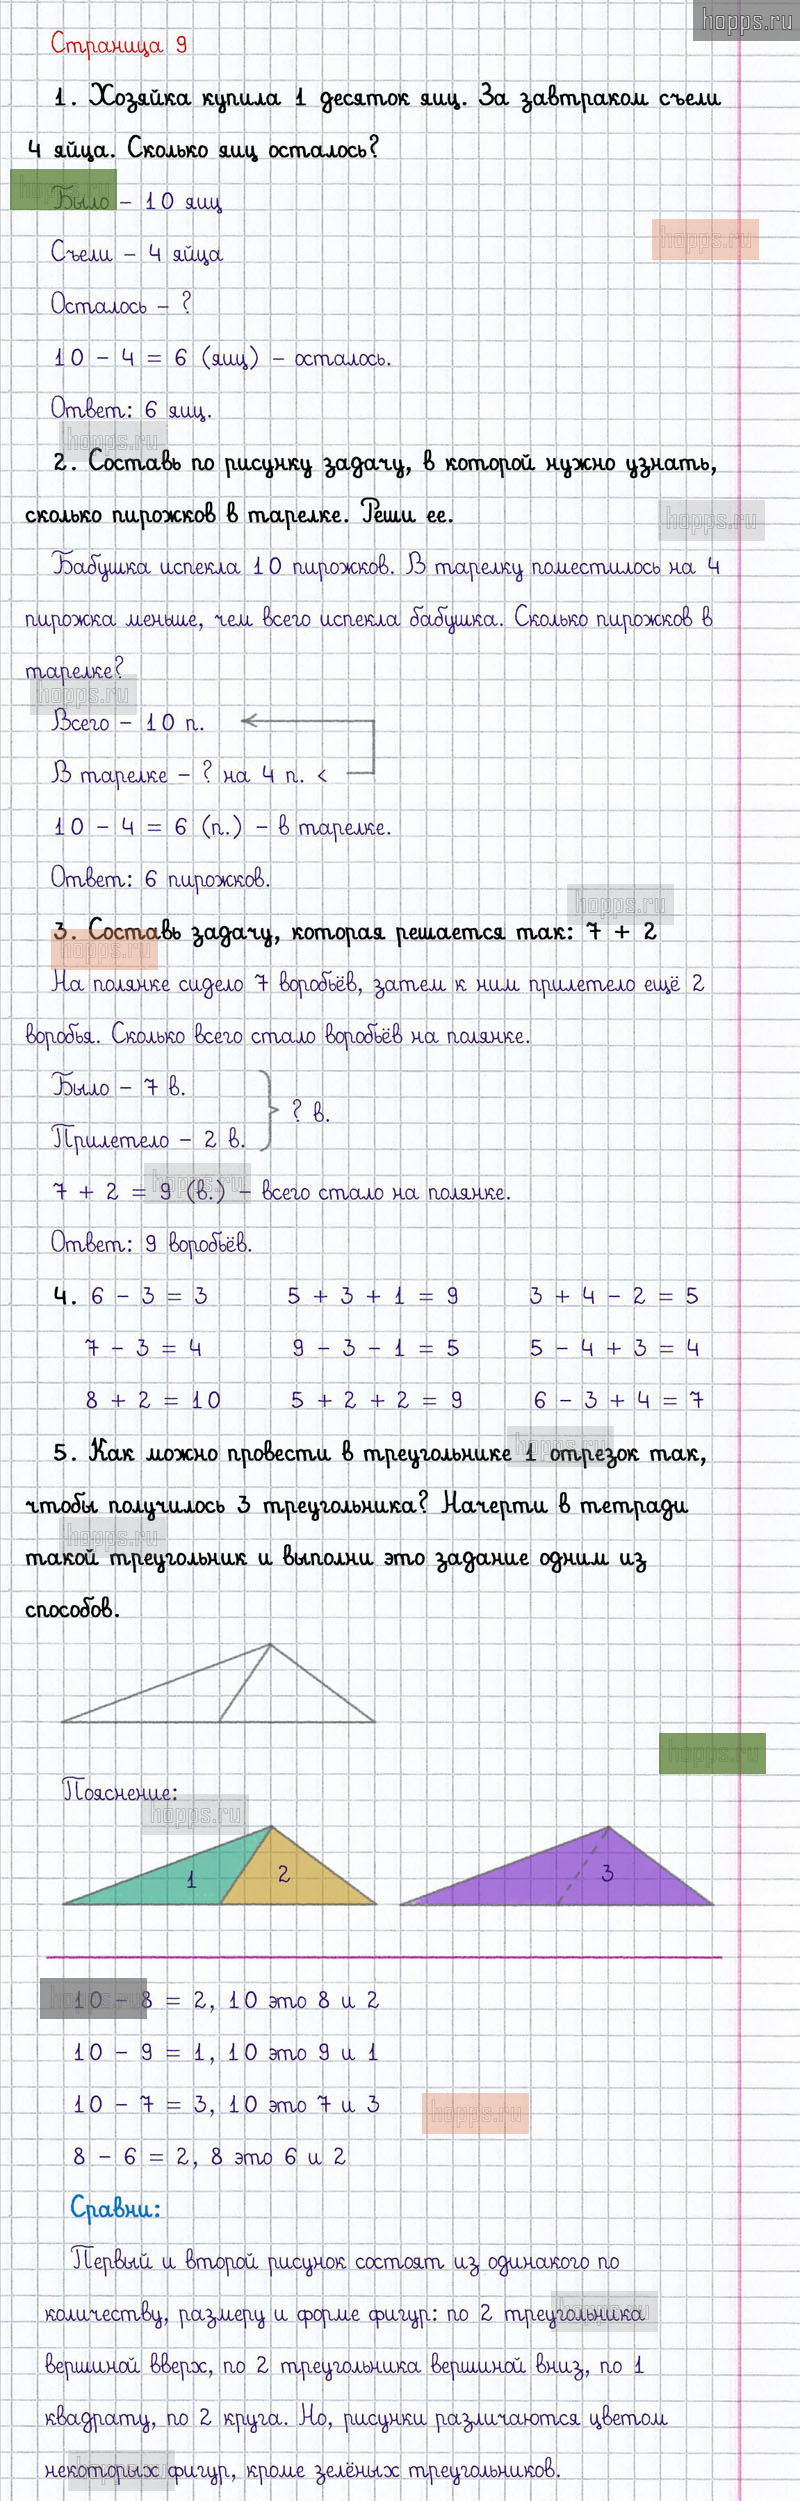 hopps.ru
Страница 9
1. Хозяйка купила 1 десяток яиц. За завтраком съели
4 яйца. Сколько яиц осталось?
hopps.ru
Было – 10 яиц
hopps.ru
Съели – 4 яйца
Осталось – ?
10 – 4 = 6 (яиц) – осталось.
Ответ: 6 яиц.
hopps.ru
2. Составь по рисунку задачу, в которой нужно узнать,
сколько пирожков в тарелке. Реши ее.
hopps.ru
Бабушка испекла 10 пирожков. В тарелку поместилось на 4
пирожка меньше, чем всего испекла бабушка. Сколько пирожков в
тарелке?
hopps.ru
Всего – 10 п.
В тарелке – ? на 4 п. <
10 – 4 = 6 (п.) – в тарелке.
Ответ: 6 пирожков.
hopps.ru
3. Составь задачу, которая решается так: 7 + 2
hopps.ru
На полянке сидело 7 воробьёв, затем к ним прилетело ещё 2
воробья. Сколько всего стало воробьёв на полянке.
Было – 7 в.
? в.
Прилетело – 2 в.
hopps.ru
7 + 2 = 9 (в.) – всего стало на полянке.
Ответ: 9 воробьёв.
4. 6 – 3 = 3 5 + 3 + 1 = 9 3 + 4 – 2 = 5
7 – 3 = 4 9 – 3 – 1 = 5 5 – 4 + 3 = 4
8 + 2 = 10 5 + 2 + 2 = 9 6 – 3 + 4 = 7
hopps.ru
5. Как можно провести в треугольнике 1 отрезок так,
чтобы получилось 3 треугольника? Начерти в тетради
hopps.ru
такой треугольник и выполни это задание одним из
способов.
hopps.ru
Пояснение:
hopps.ru
1 2 3
hopps.ru
10 – 8 = 2, 10 это 8 и 2
10 – 9 = 1, 10 это 9 и 1
10 – 7 = 3, 10 это 7 и 3
hopps.ru
8 – 6 = 2, 8 это 6 и 2
Сравни:
Первый и второй рисунок состоят из одинакого по
hopps.ru
количеству, размеру и форме фигур: по 2 треугольника
вершиной вверх, по 2 треугольника вершиной вниз, по 1
квадрату, по 2 круга. Но, рисунки различаются цветом
hopps.ru
некоторых фигур, кроме зелёных треугольников.